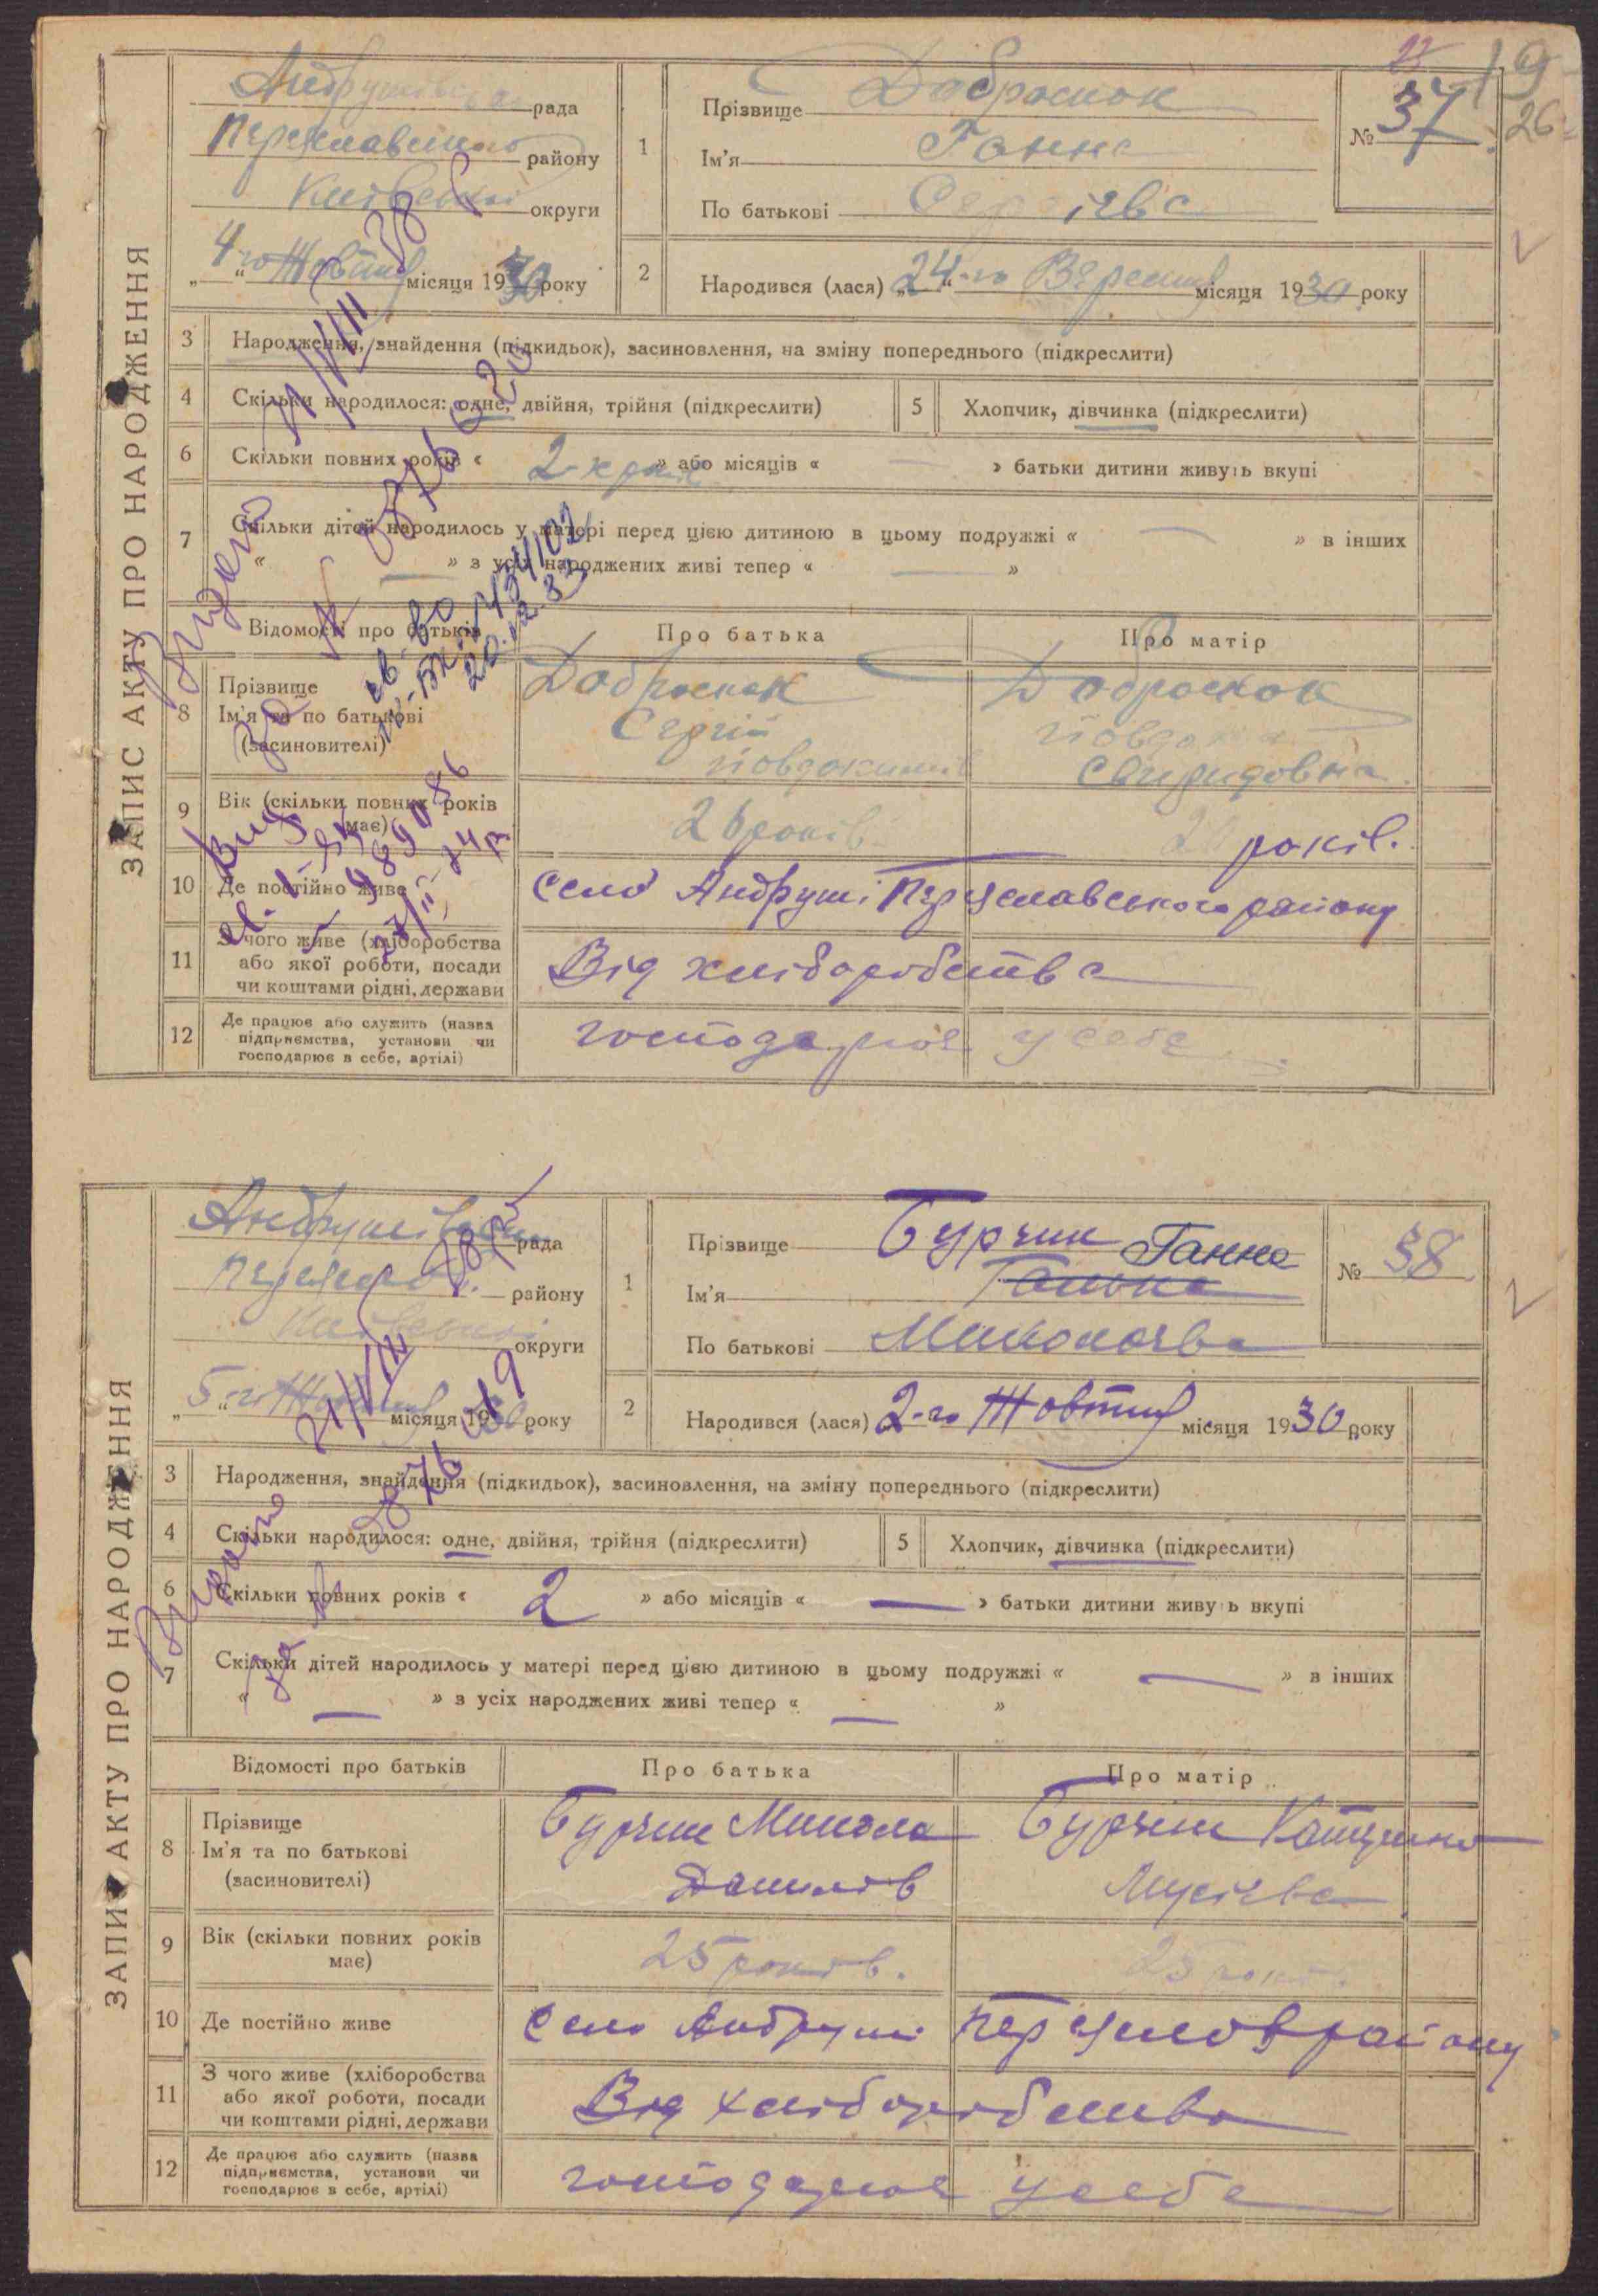 ЗАПИС АКТУ ПРО НАРОДЖЕННЯ
19
26
Андрушівська рада
Переяславського району
Київської округи
„4-го“ Жовтня місяця 1930 року
1
Прізвище Доброскок
Ім'я Ганна
По батькові Сергієва
№ 37
2
Народився (лася) „24-го“ Вересня місяця 1930 року
3 Народження, знайдення (підкидьок), засиновлення, на зміну попереднього (підкреслити)
4 Скільки народилося: одне, двійня, трійня (підкреслити)
5 Хлопчик, дівчинка (підкреслити)
6 Скільки повних років « 2 » або місяців « — » батьки дитини живуть вкупі
7 Скільки дітей народилось у матері перед цією дитиною в цьому подружжі « — » в інших
« — » з усіх народжених живі тепер « — »
Відомості про батьків Про батька Про матір
8 Прізвище
Ім'я та по батькові
(засиновителі)
Доброскок
Сергій
Йовдокимів
Доброскок
Йовдоха
Свиридовна
9 Вік (скільки повних років
має)
26 років
років.
10 Де постійно живе
село Андруші Переяславського району
11 З чого живе (хліборобства
або якої роботи, посади
чи коштами рідні, держави
Від хліборобства
12 Де працює або служить (назва
підприємства, установи чи
господарює в себе, артілі)
господарює у себе
ЗАПИС АКТУ ПРО НАРОДЖЕННЯ
Андрушівська рада
Переяслав. району
Київської округи
„5-го“ Жовтня місяця 1930 року
1
Прізвище Бурчик
Ганна
Ім'я
По батькові Миколаєва
№ 38
2
Народився (лася) 2-го Жовтня місяця 1930 року
3 Народження, знайдення (підкидьок), засиновлення, на зміну попереднього (підкреслити)
4 Скільки народилося: одне, двійня, трійня (підкреслити)
5 Хлопчик, дівчинка (підкреслити)
6 Скільки повних років « 2 » або місяців « — » батьки дитини живуть вкупі
7 Скільки дітей народилось у матері перед цією дитиною в цьому подружжі « — » в інших
« — » з усіх народжених живі тепер « — »
Відомості про батьків Про батька Про матір
8 Прізвище
Ім'я та по батькові
(засиновителі)
Бурчик Микола
Данилів
Бурчик Катерина
Мусієва
9 Вік (скільки повних років
має)
25 років.
25 років.
10 Де постійно живе
село Андруші Переяслов району
11 З чого живе (хліборобства
або якої роботи, посади
чи коштами рідні, держави
Від хліборобства
12 Де працює або служить (назва
підприємства, установи чи
господарює в себе, артілі)
господарює у себе